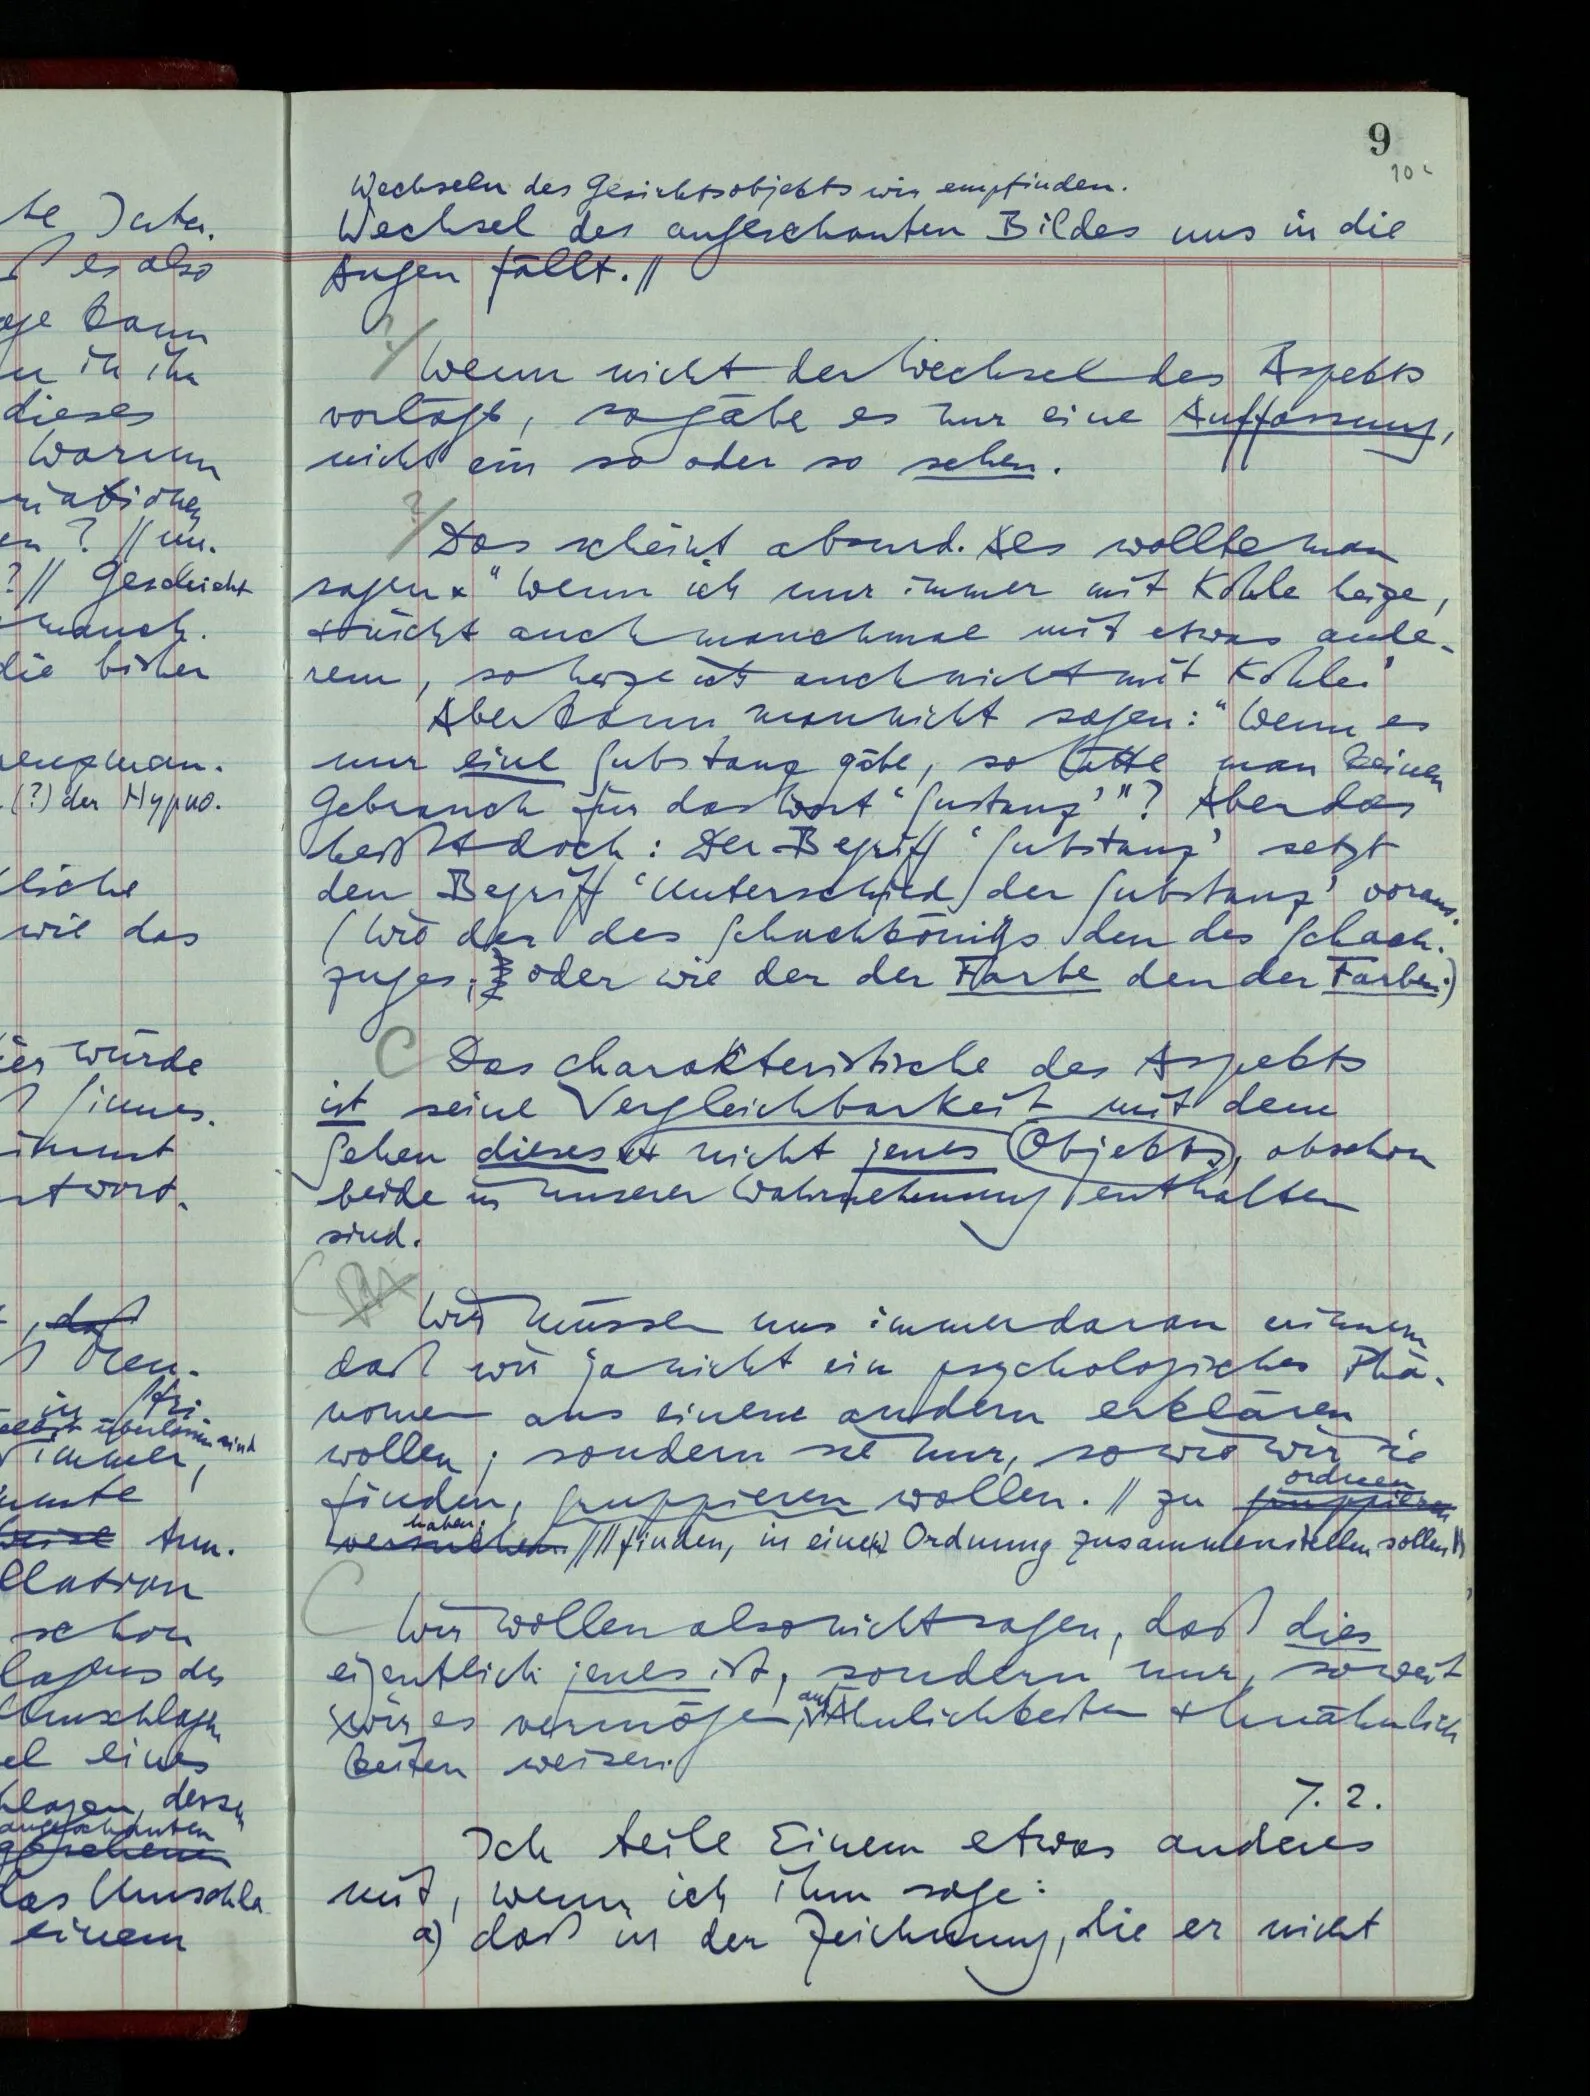 te Data.
es also
ge kann
in ihr
dieses
Warum
riationen
en? // un.
?// Geschicht
manch.
die bisher
zengman.
.(?) der Hypno.
liche
wie das
ier würde
Sinnes.
nimmt
ntwort.
, daß
in Stri
überlassen sind
immer,
immte
weise Ann.
llation
schon
lagens des
Umschlagen
el eines
hlagen, dessen
angeschauten
gesehenen
das Umschla
einem
9
Wechseln des Gesichtsobjekts wir empfinden.
Wechsel des angeschauten Bildes uns in die
Augen fällt.//
?/ Wenn nicht der Wechsel des Aspekts
vorläge, so gäbe es nur eine Auffassung,
nicht ein so oder so sehen.
?/ Das scheint absurd. Als wollte man
sagen “Wenn ich nur immer mit Kohle heize,
+ nicht auch manchmal mit etwas ande-
rem, so heize ich auch nicht mit Kohle.”
Aber kann man nicht sagen: “Wenn es
nur eine Substanz gäbe, so hätte man keinen
Gebrauch für das Wort ‘Sustanz’”? Aber das
heißt doch: Der Begriff ‘Substanz’ setzt
den Begriff ‘Unterschied der Substanz’ voraus.
(Wie der des Schachkönigs den des Schach-
zuges, oder wie der der Farbe den der Farben.)
C Das charakteristische des Aspekts
ist seine Vergleichbarkeit mit dem
Sehen dieses + nicht jenes Objekts, obschon
beide in unserer Wahrnehmung enthalten
sind.
C Wir müssen uns immer daran erinnern
daß wir ja nicht ein psychologisches Phä-
nomen aus einem andern erklären
wollen; sondern sie nur, so wie wir sie
ordnen
finden, gruppieren wollen. // zu gruppieren
haben.
versuchen. // //finden, in einer Ordnung zusammenstellen sollen//
C Wir wollen also nicht sagen, daß dies
eigentlich jenes ist, sondern nur, soweit
auf
wir es vermögen, Ähnlichkeiten + Unähnlich
keiten weisen.
7. 2.
Ich teile Einem etwas anderes
mit, wenn ich ihm sage:
a) daß in der Zeichnung, die er nicht